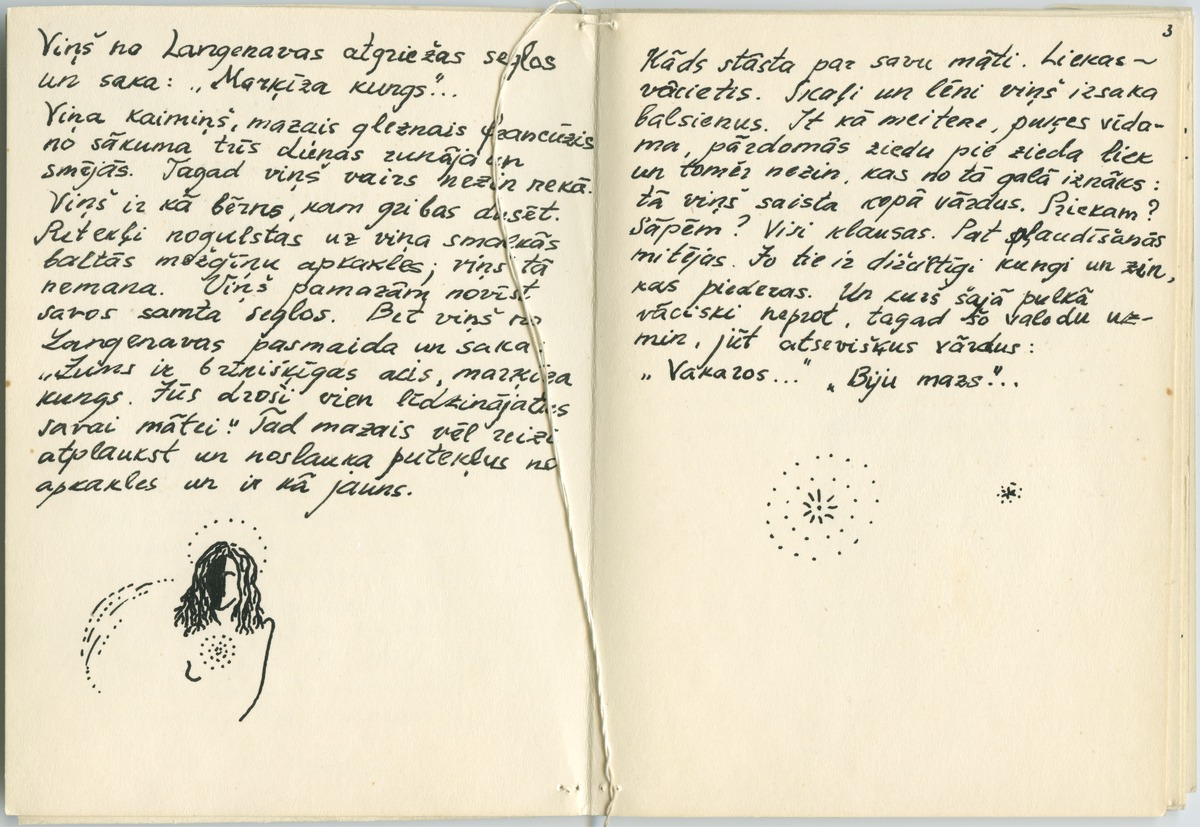 Viņš no Langenavas atgriežas seglos
un saka: „Marķīza kungs"...
Viņa kaimiņš, mazais gleznais francūzis
no sākuma trīs dienas runāja un
smējās. Tagad viņš vairs nezin nekā.
Viņš ir kā bērns, kam gribas dusēt.
Putekļi nogulstas uz viņa smalkās
baltās mežģīņu apkakles; viņš tā
nemana. Viņš pamazām novīst
savos samta seglos. Bet viņš no
Langenavas pasmaida un saka:
„Jums ir brīnišķīgas acis, marķīza
kungs. Jūs droši vien līdzinājaties
savai mātei." Tad mazais vēl reizi
atplaukst un noslauka putekļus no
apkakles un ir kā jauns.
3
Kāds stāsta par savu māti. Liekas ~
vācietis. Skaļi un lēni viņš izsaka
balsienus. It kā meitene, puķes vīda-
ma, pārdomās ziedu pie zieda liek
un tomēr nezin, kas no tā galā iznāks:
tā viņš saista kopā vārdus. Priekam?
Sāpēm? Visi klausas. Pat spļaudīšanās
mitējas. Jo tie ir dižciltīgi kungi un zin,
kas piederas. Un kurš šajā pulkā
vāciski neprot, tagad šo valodu uz-
min, jūt atsevišķus vārdus:
„Vakaros..." „Biju mazs"...